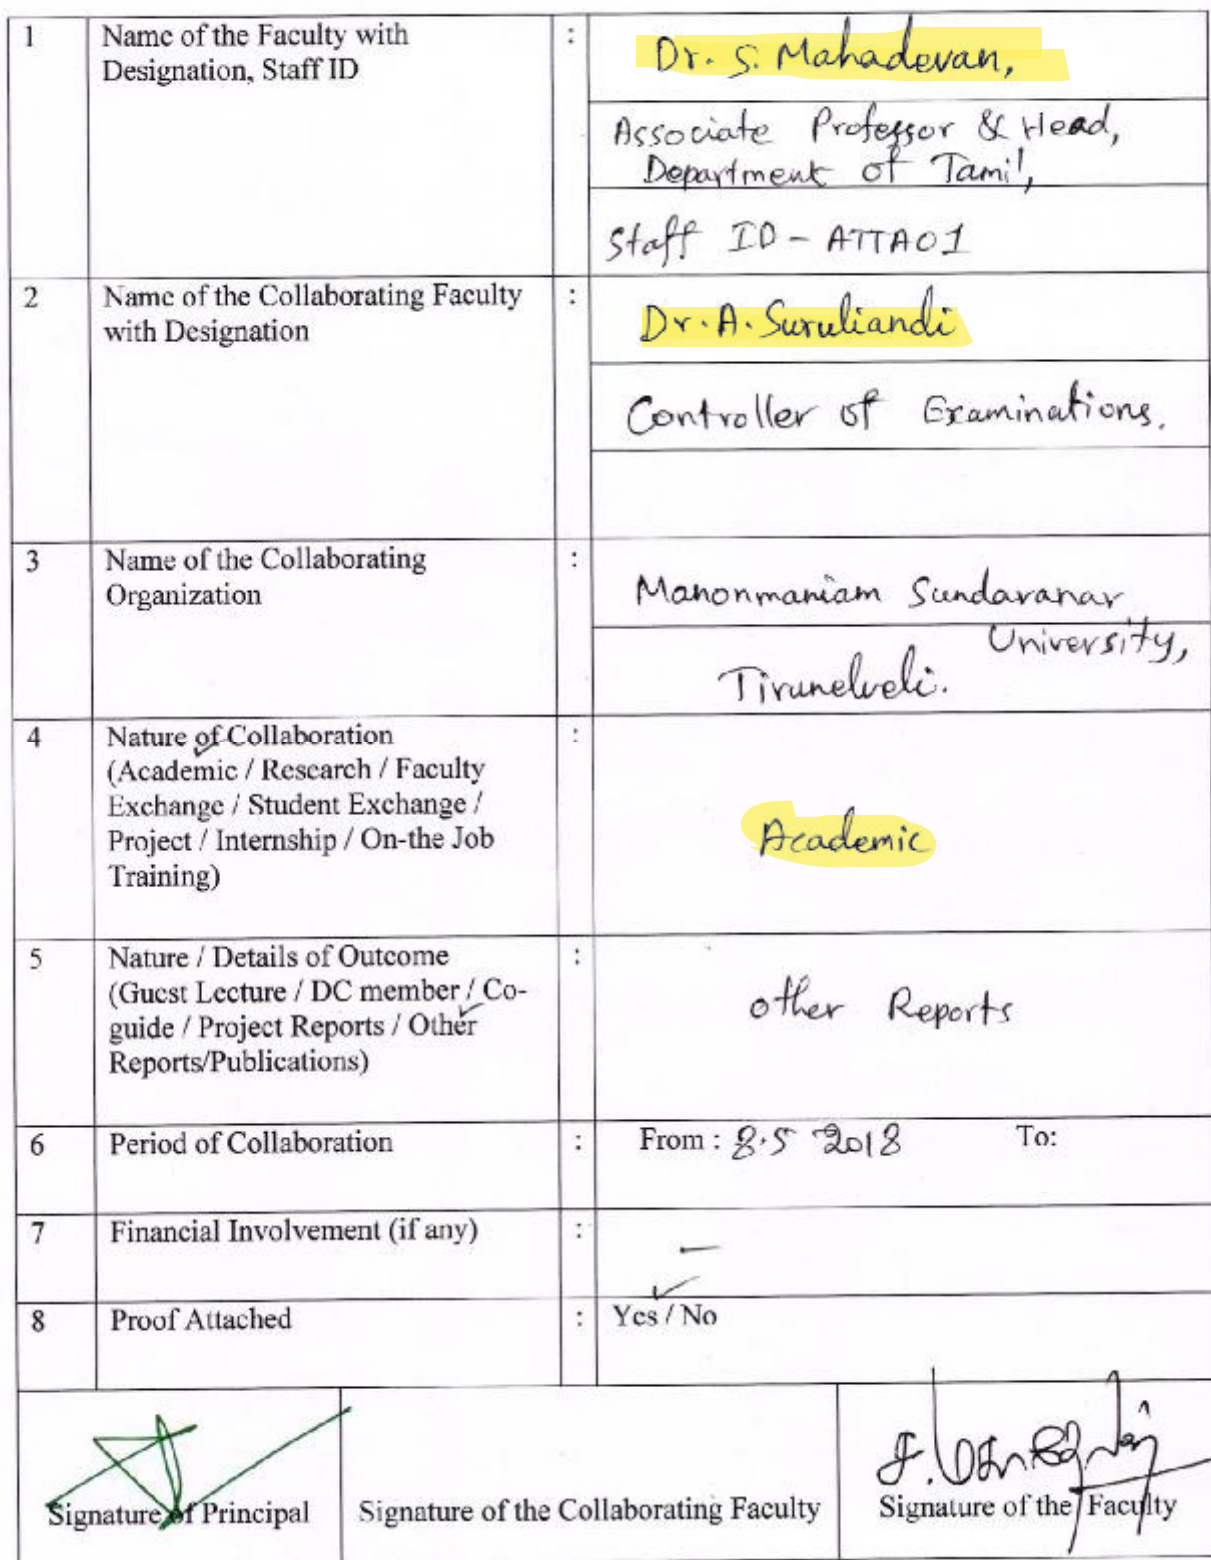 1 Name of the Faculty with : Dr. S. Mahadevan,
Designation, Staff ID
Associate Professor & Head,
Department of Tamil,
Staff ID - ATTA01
2 Name of the Collaborating Faculty : Dr. A. Suruliandi
with Designation
Controller of Examinations.
3 Name of the Collaborating : Manonmaniam Sundaranar
Organization
University,
Tirunelveli.
4 Nature of Collaboration :
(Academic / Research / Faculty
Exchange / Student Exchange /
Project / Internship / On-the Job
Training)
Academic
5 Nature / Details of Outcome :
(Guest Lecture / DC member / Co-
guide / Project Reports / Other
Reports/Publications)
other Reports
6 Period of Collaboration : From : 8.5 2018 To:
7 Financial Involvement (if any) : –
8 Proof Attached : Yes / No
Signature of Principal
Signature of the Collaborating Faculty
Signature of the Faculty